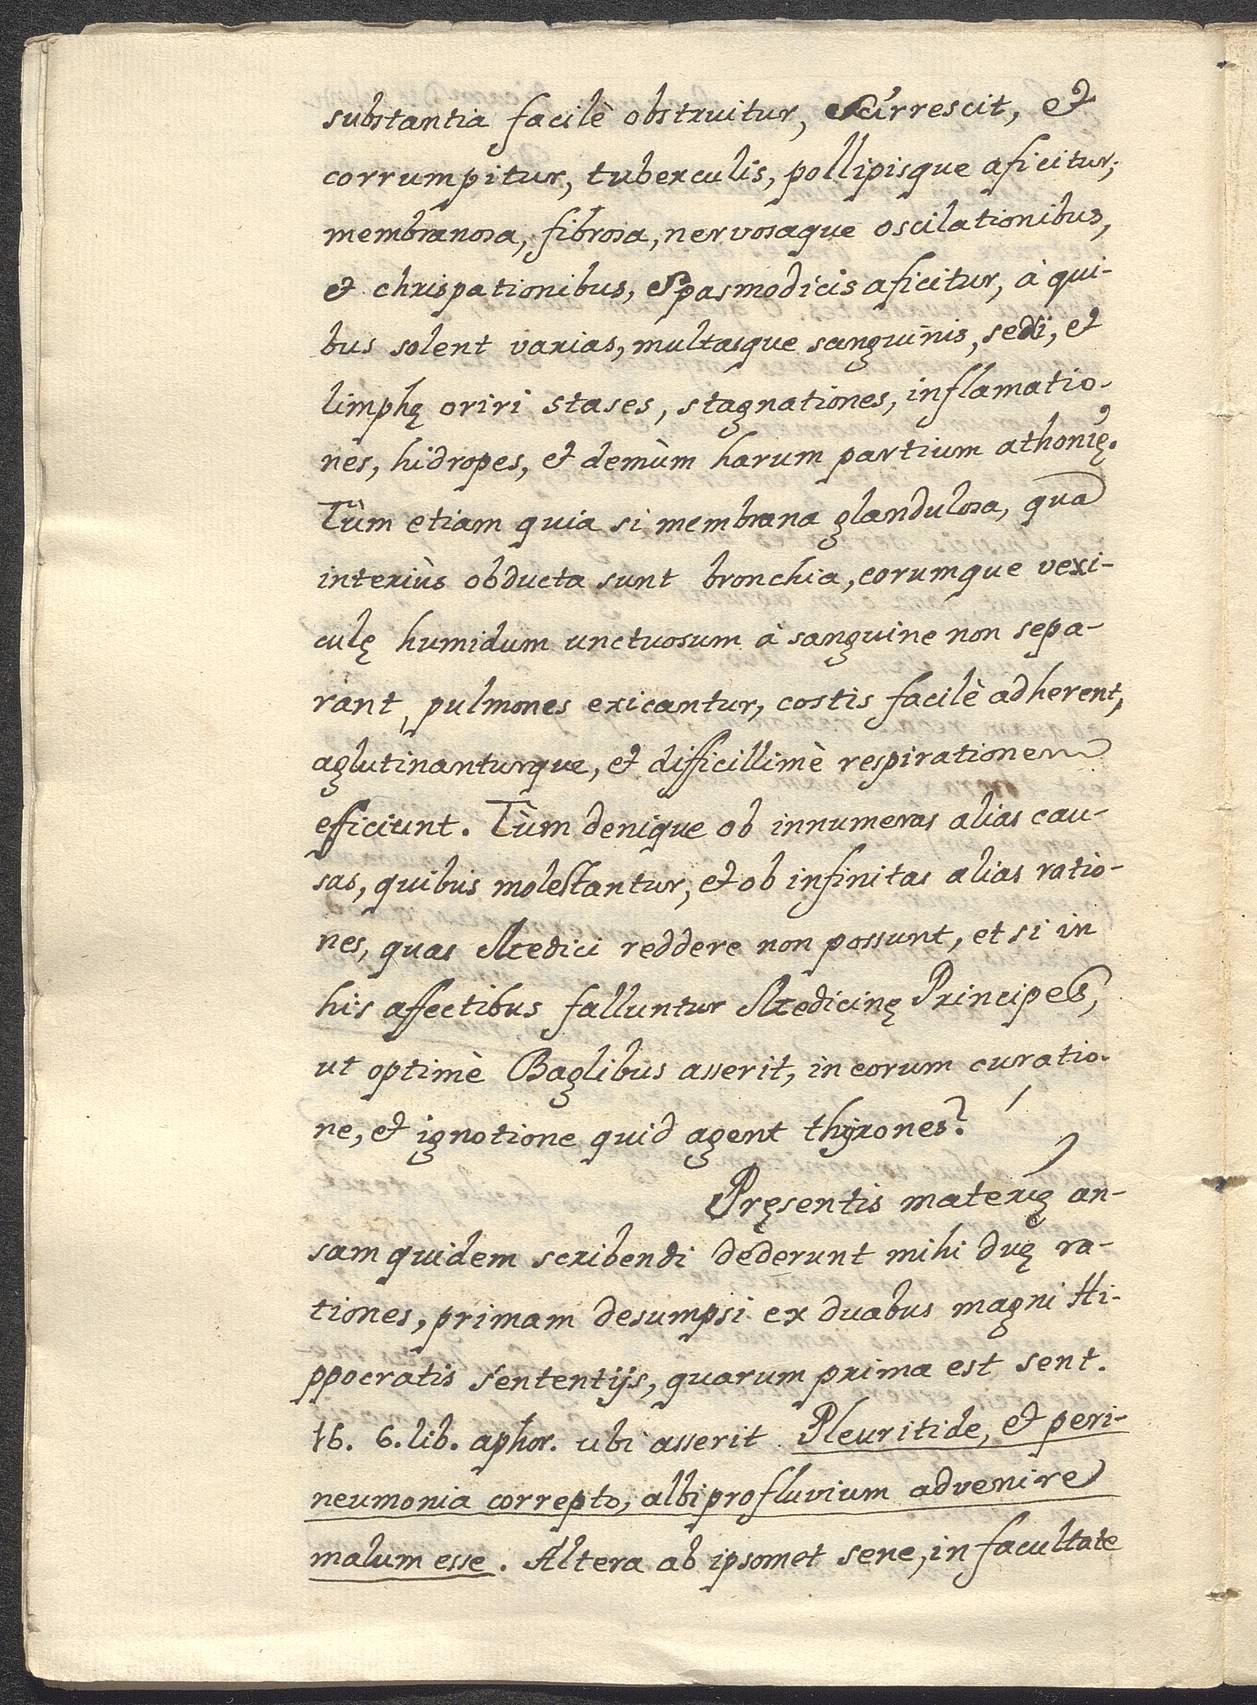 substantia facilè obstruitur, Scirrescit, et
corrumpitur, tuberculis, pollipisque aficitur;
membranosa, fibrosa, nervosaque oscilationibus,
et chrispationibus, Spasmodicis aficitur, à qui-
bus solent varias, multasque sanguinis, sedi, et
limphę oriri stases, stagnationes, inflamatio-
nes, hidropes, et demùm harum partium athonię.
Tùm etiam quia si membrana glandulosa, qua
interiùs obducta sunt bronchia, eorumque vexi-
culę humidum unctuosum à sanguine non sepa-
rant, pulmones exicantur, costis facilè adherent,
aglutinanturque, et difficillimè respirationem
efficiunt. Tùm denique ob innumeras alias cau-
sas, quibus molestantur, et ob infinitas alias ratio-
nes, quas Medici reddere non possunt, et si in
his affectibus falluntur Medicinę Principes,
ut optimè Baglibus asserit, in eorum curatio-
ne, et ignotione quid agent thyrones?
Pręsentis materię an-
sam quidem scribendi dederunt mihi duę ra-
tiones, primam desumpsi ex duabus magni Hi-
ppocratis sententijs, quarum prima est sent.
16. 6. lib. aphor. ubi asserit Pleuritide, et peri-
neumonia correpto, albi profluvium advenire
malum esse. Altera ab ipsomet sene, in facultate